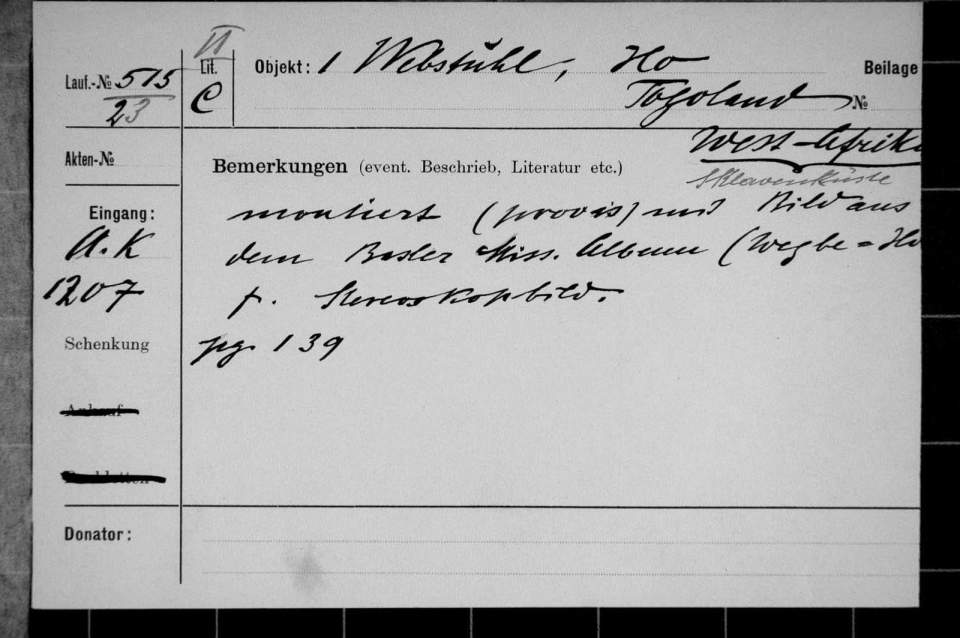 II
Lauf.-№ 515
23
Lit.
C
Objekt: 1 Webstuhl, Ho
Togoland
Beilage
№
West-Afrika
Sklavenküste
Akten-№
Bemerkungen (event. Beschrieb, Literatur etc.)
Eingang:
A. K
1207
montiert (provis) nach Bild aus
dem Basler Miss. Album (Wegbe = Ho
f. Stereoskopbild.
pg. 139
Schenkung
Ankauf
Donator: